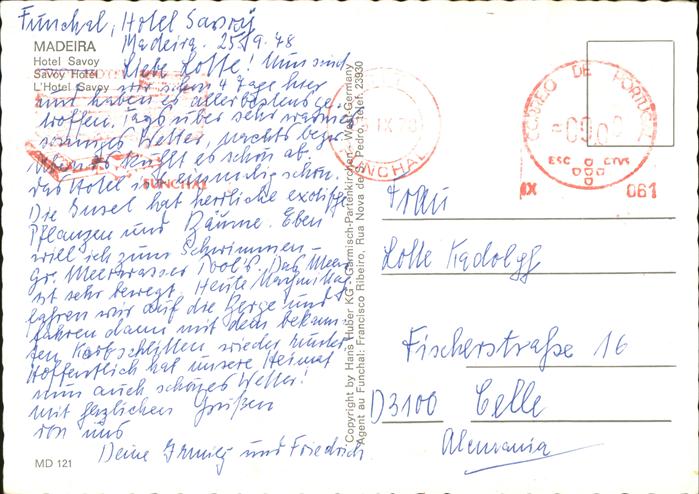 Funchal, Hotel Savoy
MADEIRA
Madeira. 25.9.78
Hotel Savoy
Savoy Hotel
L'Hotel Savoy
Liebe Lotte! Nun sind
wir schon 4 Tage hier
und haben es allerbestens ge-
troffen. Tags über sehr warmes
sonniges Wetter, nachts bezw.
abends kühlt es schön ab.
Das Hotel ist einmalig schön.
Die Insel hat herrliche exotische
Pflanzen und Bäume. Eben
will ich zum Schwimmen –
gr. Meerwasser Pool's. Das Meer
ist sehr bewegt. Heute Nachmittag
fahren wir auf die Berge und
fahren dann mit dem bekann-
ten Korbschlitten wieder runter
Hoffentlich hat unsere Heimat
nun auch schönes Wetter!
Mit herzlichen Grüßen
von uns
Deine Irmily und Friedrich
MD 121
Copyright by Hans Huber KG - Garmisch-Partenkirchen - West-Germany
Agent au Funchal: Francisco Ribeiro, Rua Nova de S. Pedro, telef. 23930
IX 78
FUNCHAL
FUNCHAL
CORREIO DE PORTUGAL
ESC CTVS
IX 061
Frau
Lotte Kadolff
Fischerstraße 16
D3100 Celle
Alemania